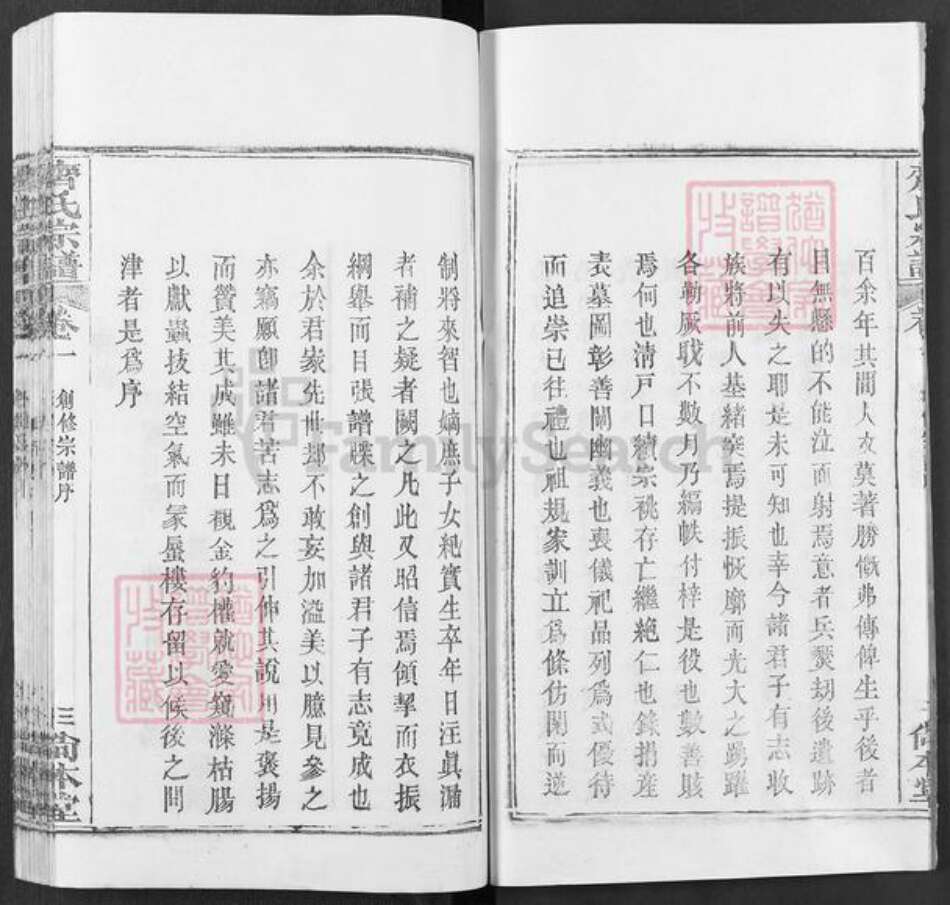 百余年其間人文莫著勝慨弗傳俾生乎後者
目無懸的不能泣而射焉意者兵燹刼後遺跡
有以失之耶是未可知也幸今諸君子有志收
族將前人基緒突焉提振恢廓而光大之踴躍
各勷厥職不數月乃編帙付梓是役也數善賅
焉何也清戸口續宗祧存亡繼絶仁也錄捐産
表墓圖彰善闡幽義也喪儀祀品列爲式優待
而追崇已往禮也祖規家訓立爲條仿閑而逆
制將來智也嫡庶子女紀實生卒年日注眞漏
者補之疑者闕之凡此又昭信焉領挈而衣振
綱舉而目張譜牒之創與諸君子有志竟成也
余於君家先世却不敢妄加溢美以臆見參之
亦竊願卽諸君苦志爲之引伸其說用是褒揚
而贊美其成雖未目觀金豹權就愛窺滌枯腸
以獻蟲技結空氣而冡蜃樓存留以俟後之問
津者是爲序
齊氏宗譜
卷一
創修宗譜序
三
尙本堂
FamilySearch